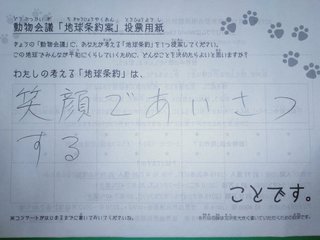 動物会議「地球条約案」投票用紙
きょうの「動物会議」に、あなたが考える「地球条約」を1つ提案してください。
この地球でみんなが平和にくらしていくために、どんなことを決めたらよいと思いますか?
わたしの考える「地球条約」は、
笑顔であいさつ
する
ことです。